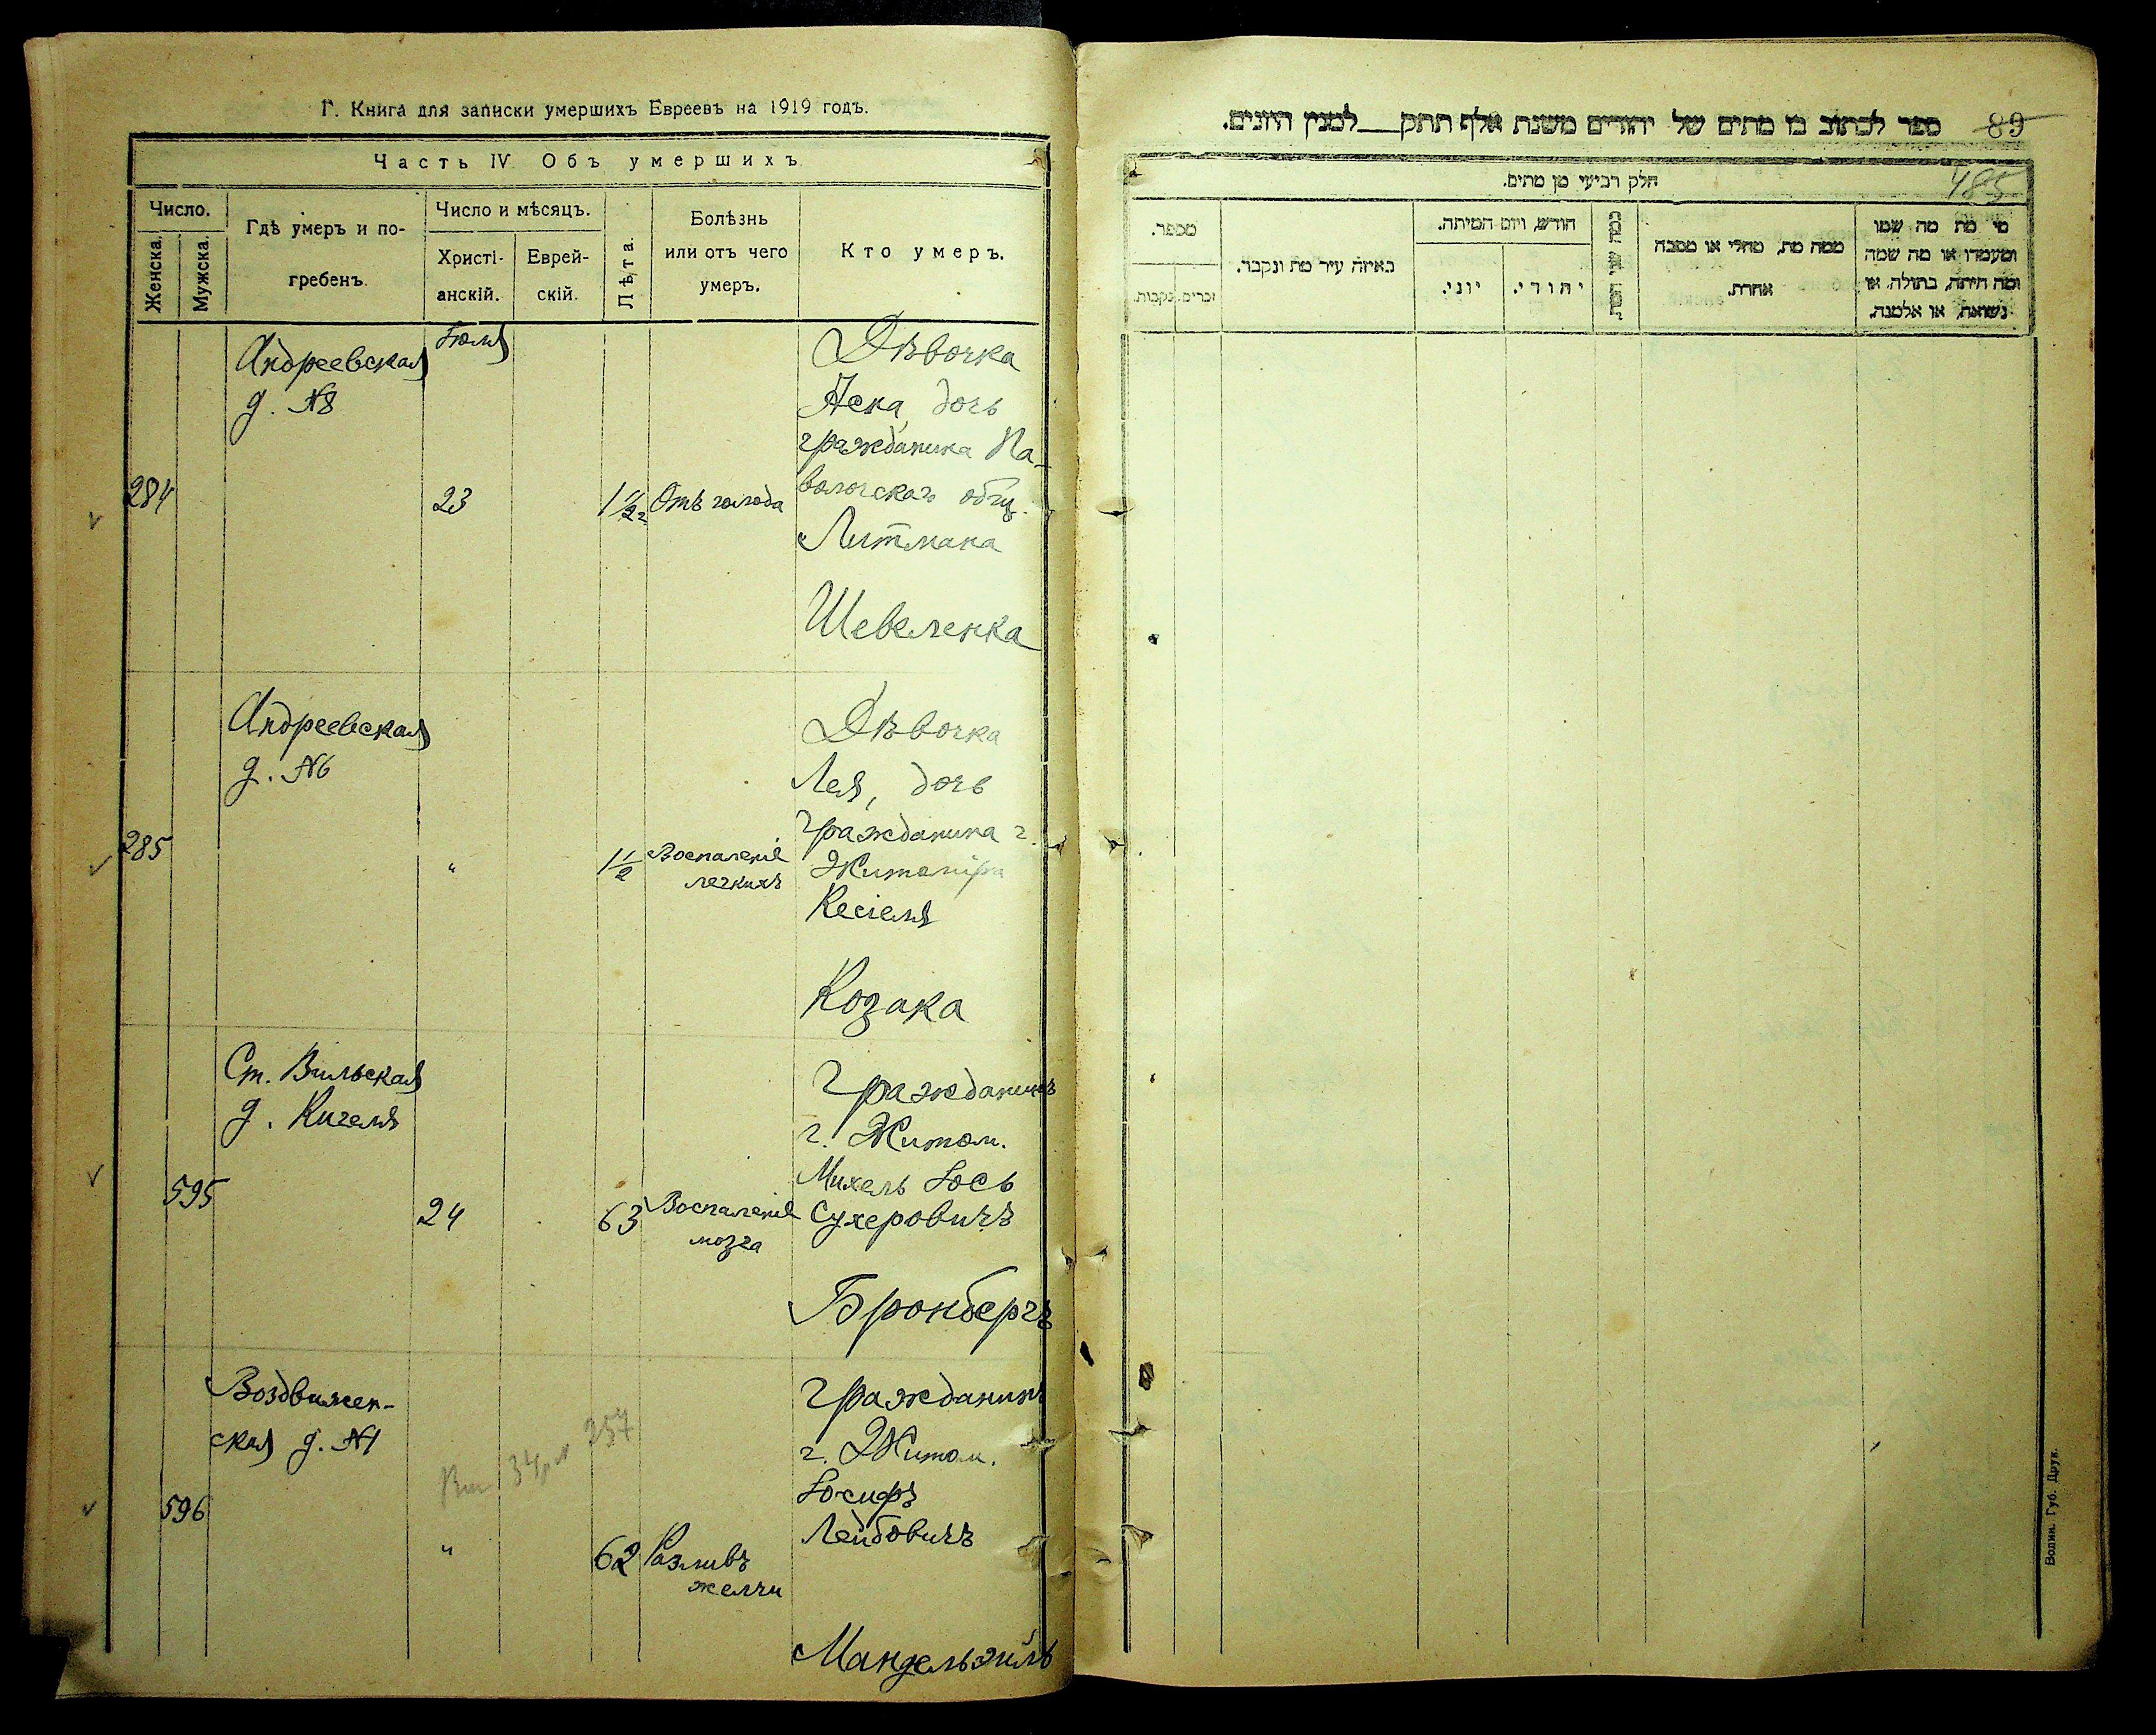 Г. Книга для записки умершихъ Евреевъ на 1919 годъ.
Часть IV Объ умершихъ
Число.
Женска.
Мужска.
Гдѣ умеръ и по-
гребенъ.
Число и мѣсяцъ.
Христі-
анскій.
Еврей-
скій.
Лѣта.
Болѣзнь
или отъ чего
умеръ.
Кто умеръ.
284
Андреевская
д. №8
Іюля
23
1 1/2 г
Отъ голода
Дѣвочка
дочь
гражданина Па-
волочскаго общ.
Литмана
Шевеленка
285
Андреевская
д. №6
"
1 1/2
Воспаленіе
легкихъ
Дѣвочка
Лея, дочь
гражданина г.
Житоміра
Кесіеля
Козака
595
Ст. Вильская
д. Кигеля
24
63
Воспаленіе
мозга
Гражданинъ
г. Житом.
Михель Іось
Сухеровичъ
Бронбергъ
596
Воздвижен-
ская д. №1
"
62
Разливъ
желчи
Гражданинъ
г. Житом.
Іосифъ
Лейбовичъ
Мандельэйль
257
89
ספר לכתוב בו מתים של יהודים משנת אלף תתק__למנין היונים.
485
חלק רביעי מן מתים.
מספר.
זכרים.
נקבות.
באיזה עיר מת ונקבר.
חודש, ויום המיתה.
יוני.
יהודי.
ממה מת, מחלי או מסבה
אחרת.
מי מת מה שמו
ומעמדו או מה שמה
ומה היתה, בתולה או
נשואה, או אלמנה.
Волин. Губ. Друк.